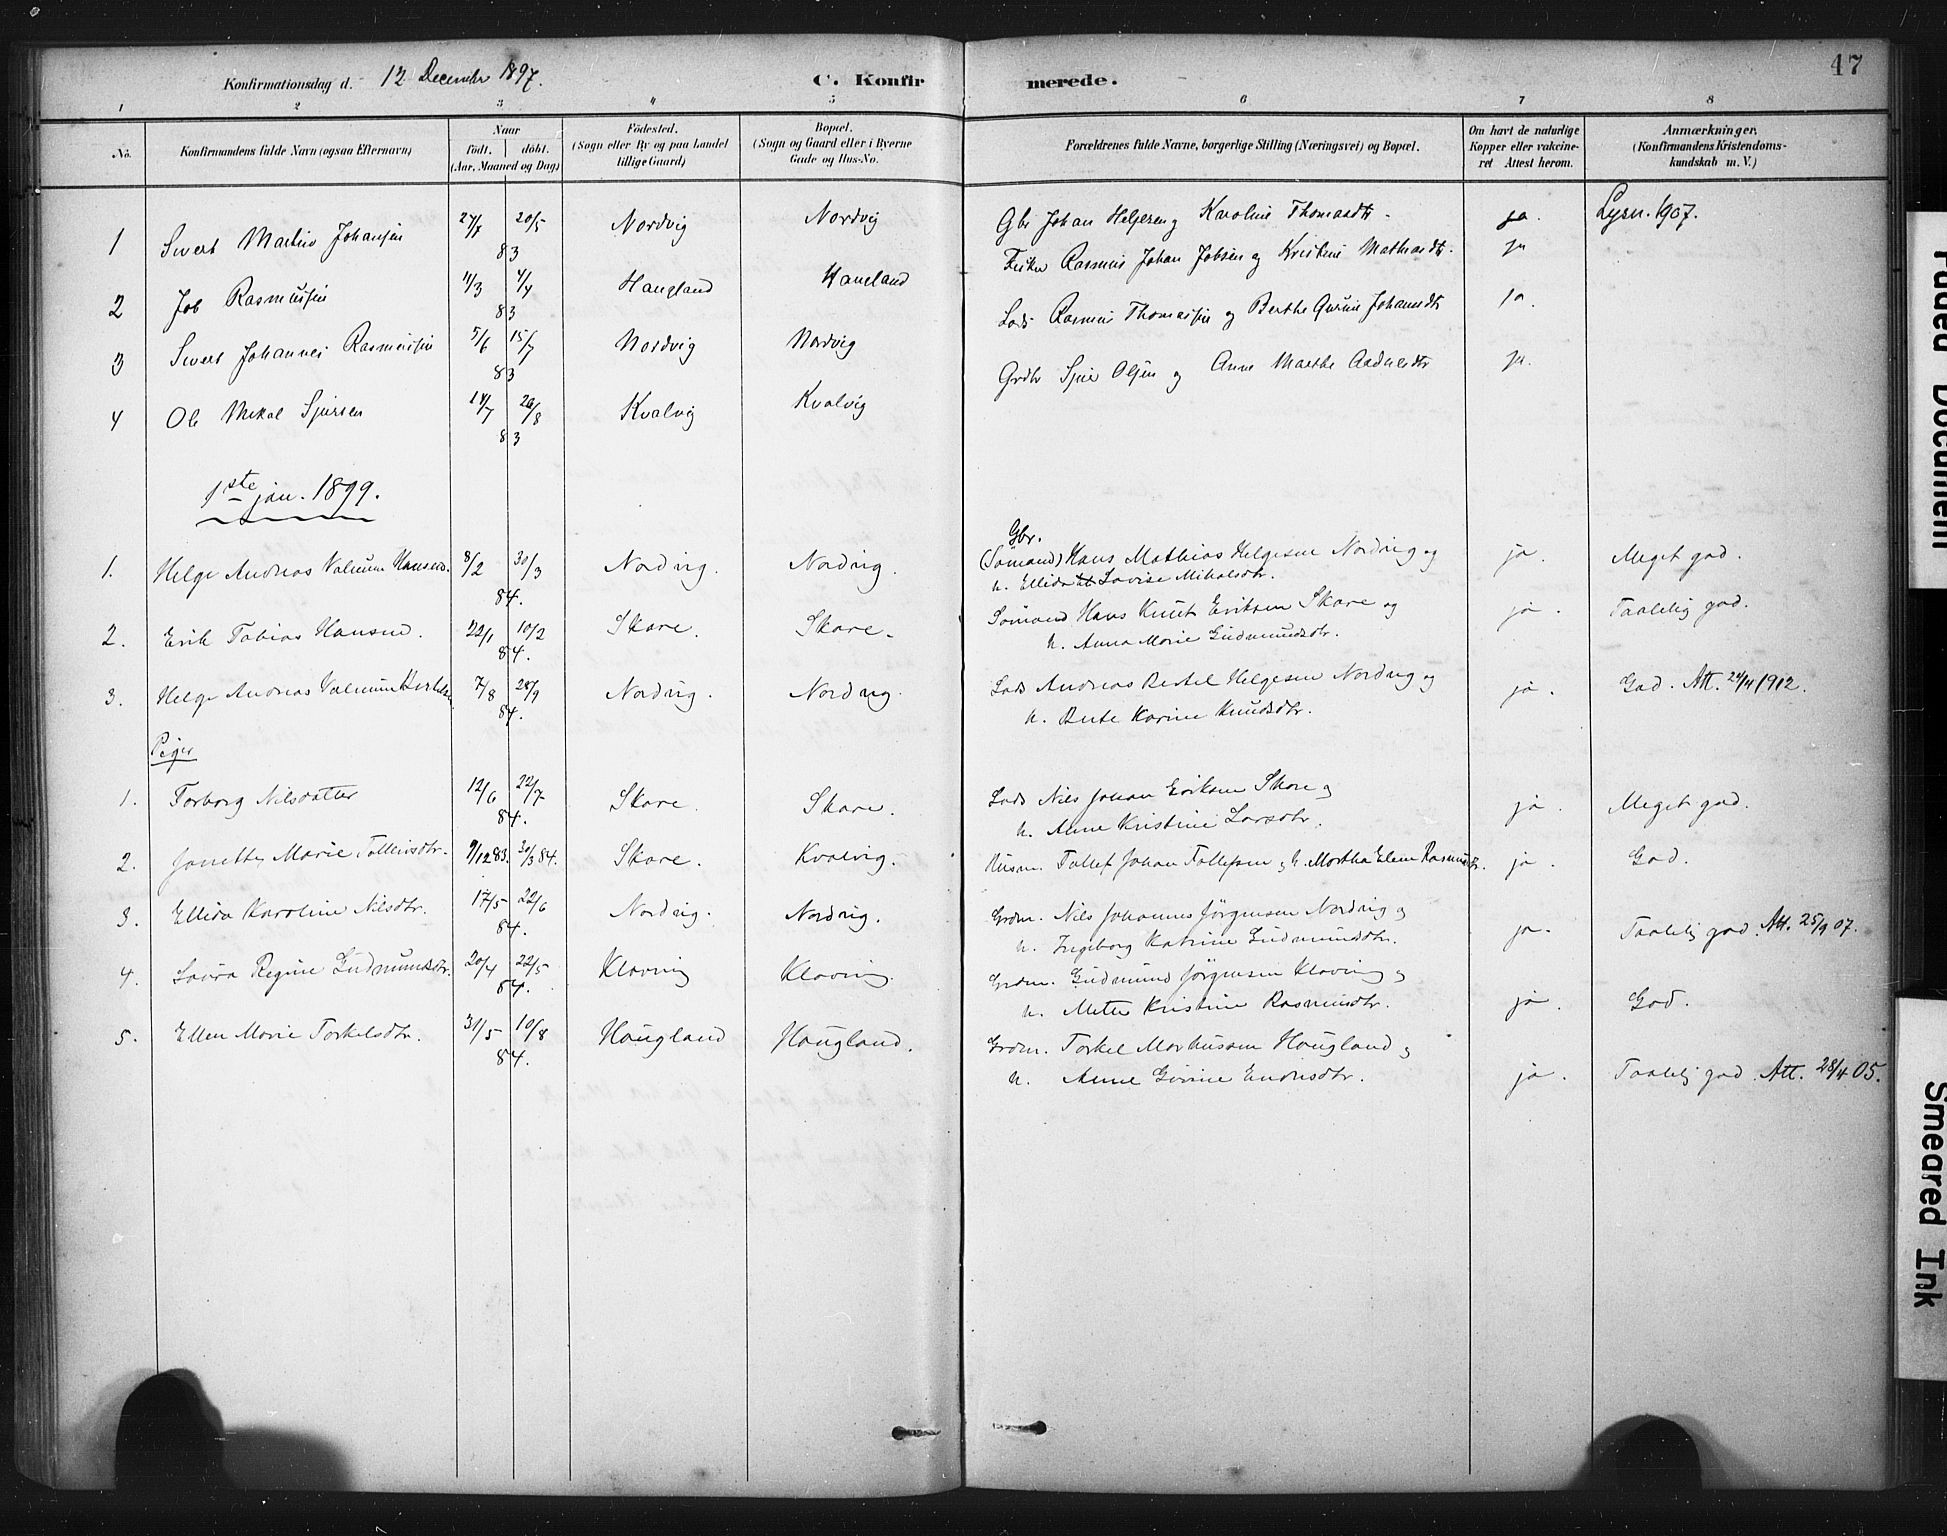 Konfirmationsdag d. 12 December 1897. C. Konfirmerede. 47
1 2 3 4 5 6 7 8
No. Konfirmandens fulde Navn (ogsaa Efternavn) Naar födt. döbt. (Aar, Maaned og Dag) Födested. (Sogn eller By og paa Landet tillige Gaard) Bopæl. (Sogn og Gaard eller i Byerne Gade og Hus-No. Forældrenes fulde Navne, borgerlige Stilling (Næringsvei) og Bopæl. Om havt de naturlige Kopper eller vakcineret Attest herom. Anmærkninger. (Konfirmandens Kristendomskundskab m. V.)
1 Sivert Martin Johansen 27/7 20/5 83 Nordvig Nordvig Gbr Johan Helgesen og Karoline Thomasdtr. ja. Lysn. 1907.
2 Job Rasmussen 11/3 4/4 83 Haugland Haugland Fisker Rasmus Johan Jobsen og Kristine Mathiasdtr. ja
3 Sivert Johannes Rasmussen 5/6 15/7 83 Nordvig Nordvig Lods Rasmus Thomassen og Berthe Gurine Johannsdtr ja.
4 Ole Mikal Sjursen 14/7 26/8 83 Kvalvig Kvalvig Grdbr Sjur Olsen og Anne Marthe Aadnesdtr ja.
1ste jan. 1899.
1. Helge Andreas Hansen. 8/2 30/3 84. Nordvig. Nordvig. Gbr. (Sømand) Hans Mathias Helgesen Nordvig og
h. Ellida Lovise Mikalsdtr. ja. Meget god.
2. Erik Tobias Hansen. 22/1 10/2 84. Skare. Skare. Sømand Hans Knut Eriksen Skare og
h. Anna Marie Gudmundsdtr. ja. Taalelig god.
3. Helge Andreas Bertelsen 7/8 28/9 84. Nordvig. Nordvig. Lods Andreas Bertel Helgesen Nordvig og
h. Berte Karine Knudsdtr. ja. God. Att. 24/4 1912.
Piger
1. Torborg Nilsdatter 12/6 22/7 84. Skare. Skare. Lods Nils Johan Eriksen Skare og
h. Anne Kristine Larsdtr. ja. Meget god.
2. Janette Marie Tollevsdtr. 9/12 83. 30/3 84. Skare. Kvalvig. Husm. Tollef Johan Tollefsen og h. Martha Elene Rasmusdtr. ja. God.
3. Ellida Karoline Nilsdtr. 17/5 22/6 84. Nordvig. Nordvig. Grdm. Nils Johannes Jörgensen Nordvig og
h. Ingeborg Katrine Gudmundsdtr. ja. Taalelig god. Att. 25/9 07.
4. Laura Regine Gudmundsdtr. 20/4 22/5 84. Klovning Klovning. Grdm. Gudmund Jörgensen Klovning og
h. Mette Kristine Rasmusdtr. ja. God.
5. Ellen Marie Torkelsdtr. 31/5 10/8 84. Haugland Haugland. Grdm. Torkel Markussen Haugland og
h. Anne Gurine Endresdtr. ja. Taalelig god. Att. 28/4 05.
Faded Document
Smeared Ink